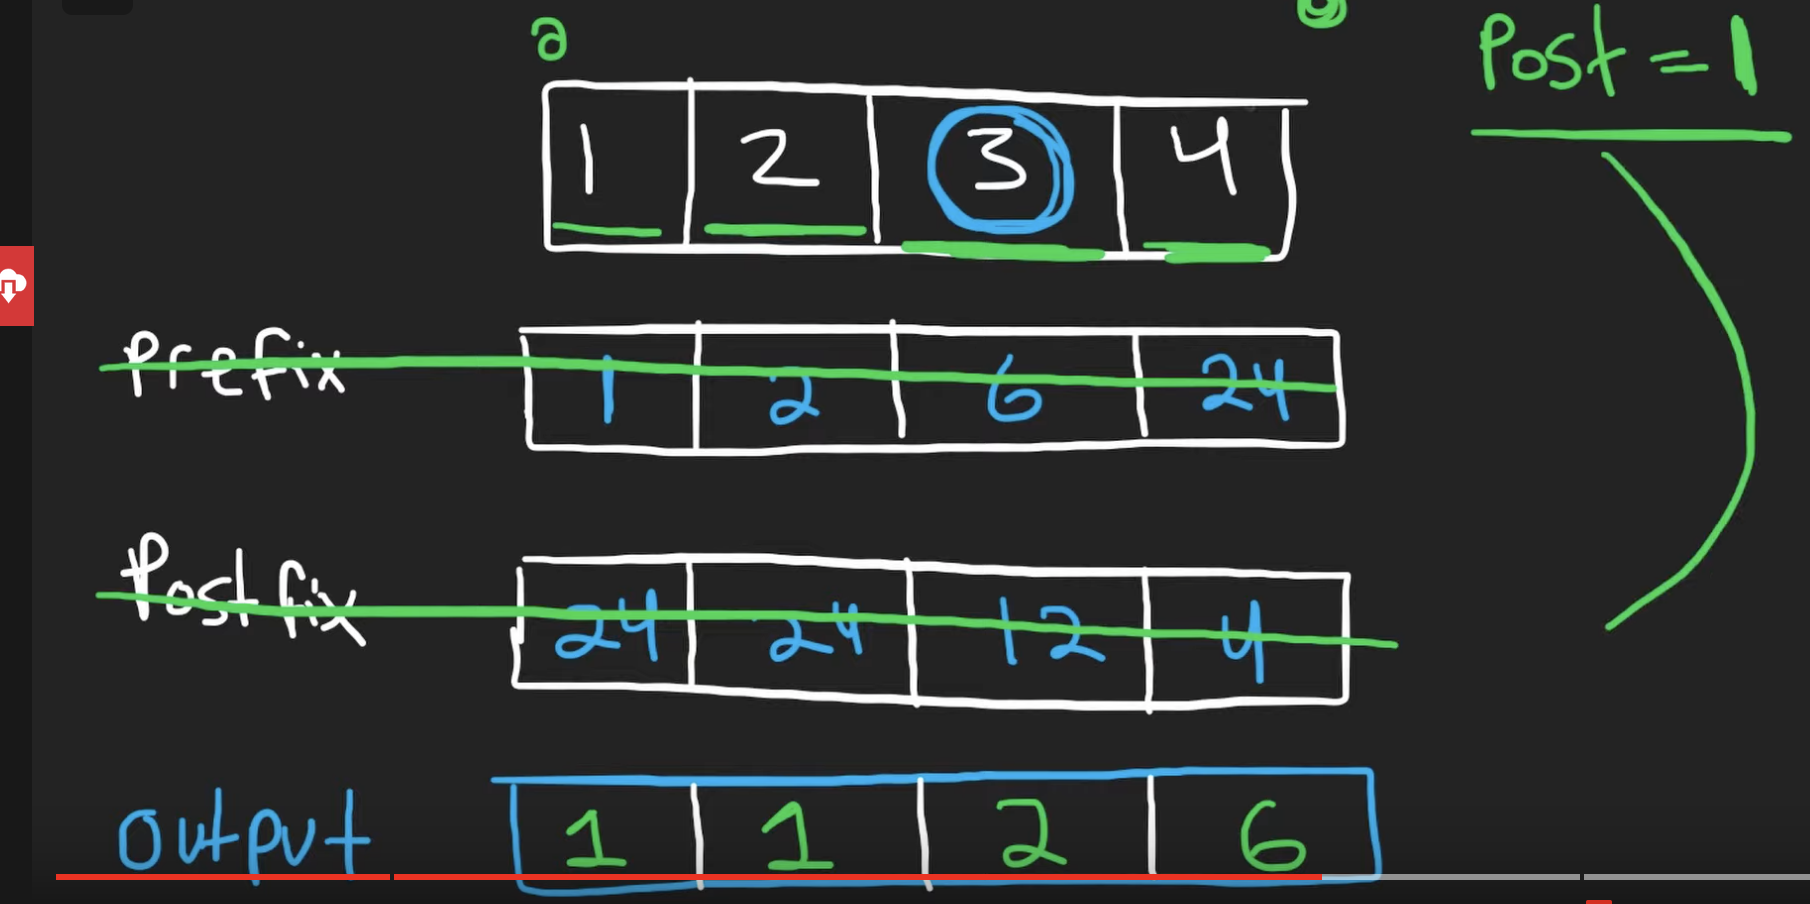 a
Post = 1
1 2 3 4
Prefix 1 2 6 24
Postfix 24 24 12 4
Output 1 1 2 6